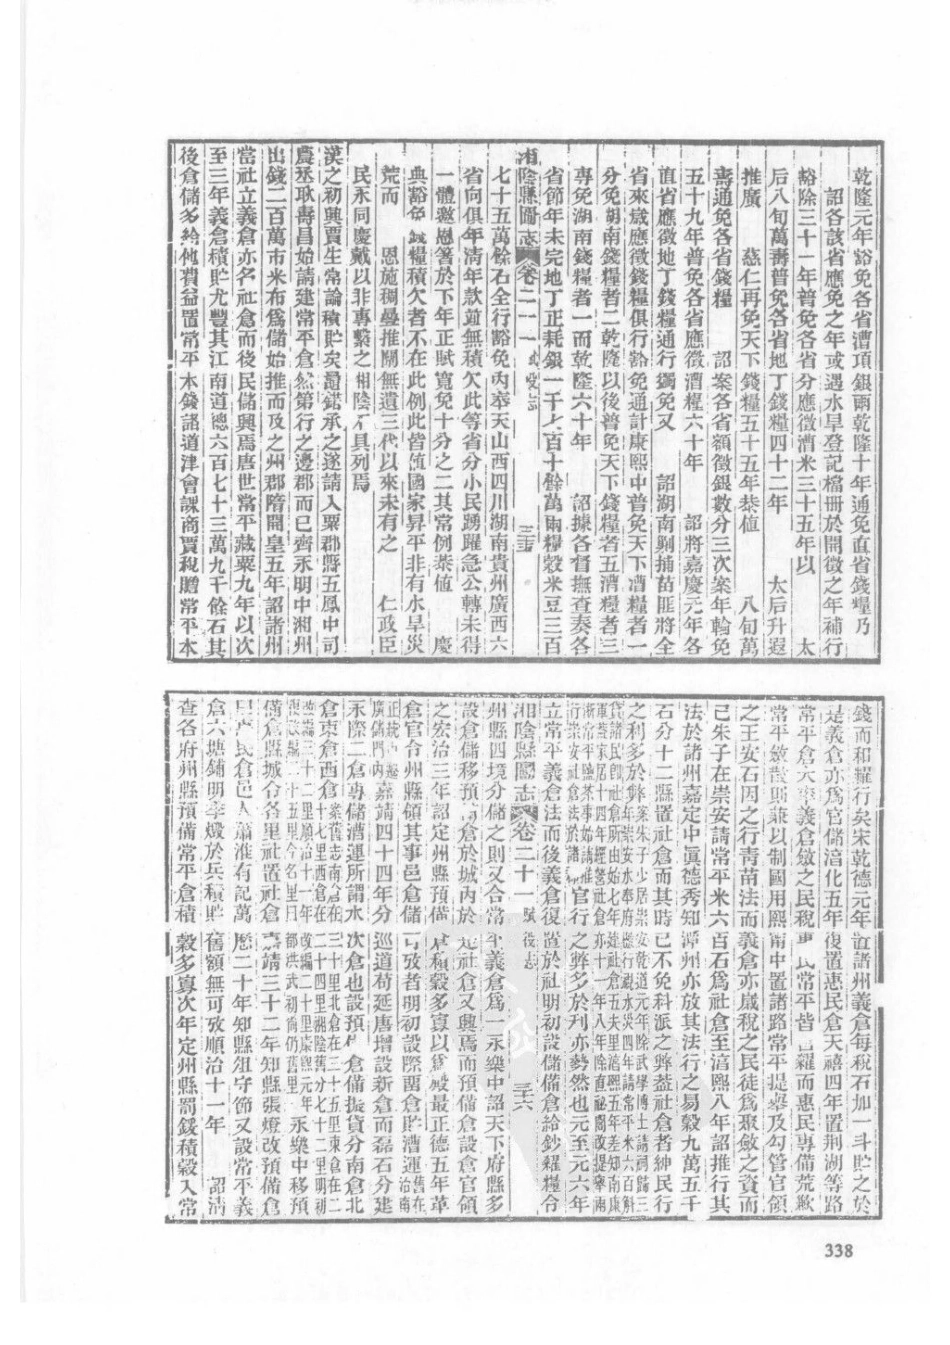 乾隆元年豁免各省漕項銀兩乾隆十年通免直省錢糧乃
詔各該省應免之年或遇水旱登記檔冊於開徵之年補行
豁除三十一年普免各省分應徵漕米三十五年以　太
后八旬萬壽普免各省地丁錢糧四十二年　太后升遐
推廣　慈仁再免天下錢糧五十五年恭值　八旬萬
壽通免各省錢糧　詔案各省額徵銀數分三次案年輪免
五十九年普免各省應徵漕糧六十年　詔將嘉慶元年各
直省應徵地丁錢糧通行蠲免又　詔湖南剿捕苗匪將全
省來歲應徵錢糧俱行豁免通計康熙中普免天下漕糧者一
分免湖南錢糧者二乾隆以後普免天下錢糧者五漕糧者三
專免湖南錢糧者一而乾隆六十年　詔據各督撫查奏各
省節年未完地丁正耗銀一千七百十餘萬兩糧穀米豆三百
湘陰縣圖志　卷二十一　賦役志　三五
七十五萬餘石全行豁免內奉天山西四川湖南貴州廣西六
省向俱年清年款並無積欠此等省分小民踴躍急公轉未得
一體邀恩著於下年正賦寬免十分之二其常例恭值　慶
典豁免錢糧積欠者不在此例此皆值國家昇平非有水旱災
荒而　恩施稠疊推闡無遺三代以來未有之　仁政臣
民永同慶戴以非專繫之湘陰不具列焉
漢之初興賈生常論積貯矣鼂錯承之遂請入粟郡縣五鳳中司
農丞耿壽昌始請建常平倉然第行之邊郡而已齊永明中湘州
出錢二百萬市米布為儲始推而及之州郡隋開皇五年詔諸州
當社立義倉亦名社倉而後民儲興焉唐世常平藏粟九年以次
至三年義倉積貯尤豐其江南道總六百七十三萬九千餘石其
後倉儲多給他費益置常平本錢諸道津會課商賈稅贍常平本
錢而和糴行矣宋乾德元年詔諸州義倉每稅石加一斗貯之於
是義倉亦為官儲淳化五年復置惠民倉天禧四年置荊湖等路
常平倉大率義倉斂之民稅惠民常平皆官糴而惠民專備荒歉
常平斂散則兼以制國用熙甯中置諸路常平提舉及勾管官領
之王安石因之行青苗法而義倉亦歲稅之民徒為聚斂之資而
已朱子在崇安請常平米六百石為社倉至淳熙八年詔推行其
法於諸州嘉定中眞德秀知潭州亦放其法行之易穀九萬五千
石分十二縣置社倉而其時已不免科派之弊蓋社倉者紳民行
之利多於弊官行之弊多於利亦勢然也元至元六年
立常平義倉法而後義倉復置於社明初設儲備倉給鈔糴糧令
湘陰縣圖志　卷二十一　賦役志　三六
州縣四境分儲之則又合常平義倉為一永樂中詔天下府縣多
設倉儲移預備倉於城內於是社倉又興焉而預備倉設倉官領
之宏治三年詔定州縣預備倉積穀多寡以為殿最正德五年革
倉官令州縣領其事邑倉儲可攷者明初設際留倉貯漕運
嘉靖四十四年分巡道苟延唐增設新倉而磊石分建
永際二倉專儲漕運所謂水次倉也設預備倉備振貸分南倉北
倉東倉西倉永樂中移預
備倉縣城令各里社置社倉嘉靖三十二年知縣張燈改預備倉
曰廣民倉邑人蕭淮有記萬厯二十年知縣俎守節又設常平義
倉六塘鋪明季燬於兵積貯舊額無可攷順治十一年　詔清
查各府州縣預備常平倉積穀多寡次年定州縣罰鍰積穀入常
338